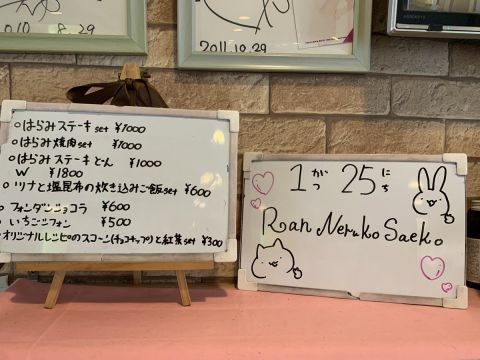 2010.8.29
2011.10.29
○はらみステーキset ¥1000
○はらみ焼肉set ¥1000
○はらみステーキどん ¥1000
W ¥1800
○ツナと塩昆布の炊き込みご飯set ¥600
○フォンダンショコラ ¥600
○いちごシフォン ¥500
○オリジナルレシピのスコーン(チョコチップ)と紅茶set ¥300
1がつ25にち
Ran Neruko Saeko。